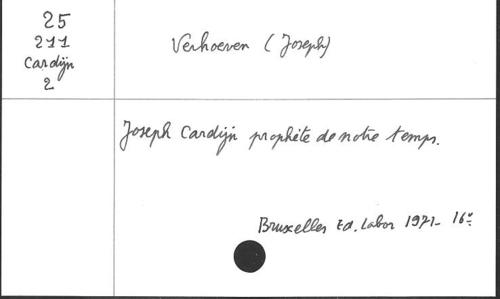 25
211
Cardijn
2
Verhoeven (Joseph)
Joseph Cardijn prophète de notre temps.
Bruxelles Ed. Labor 1971- 16º